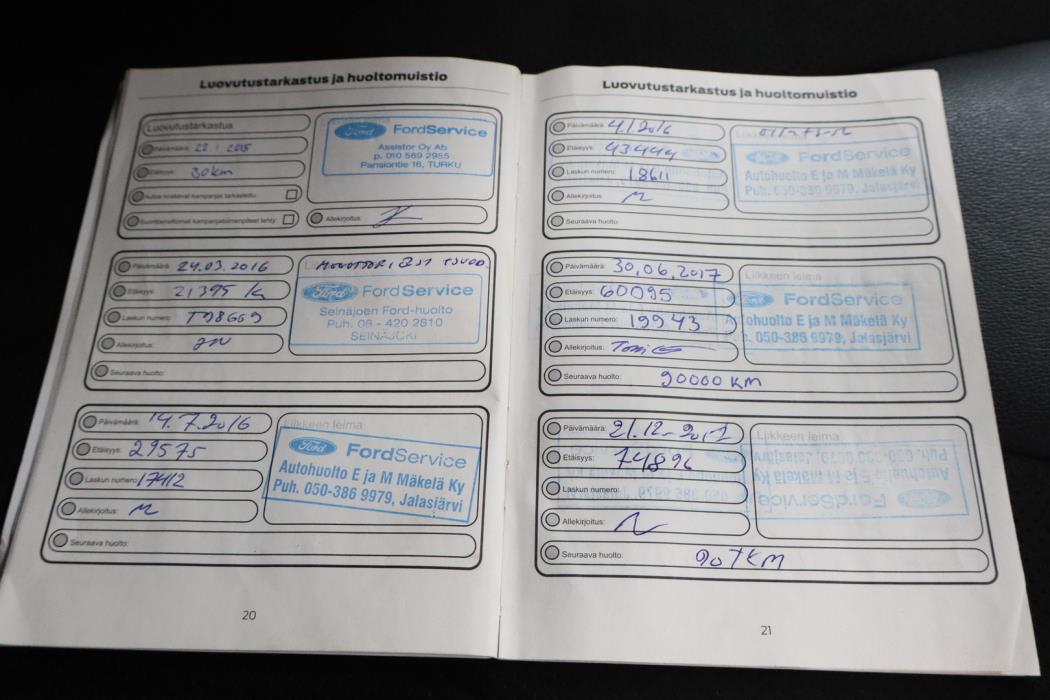 Luovutustarkastus ja huoltomuistio
Luovutustarkastus
Päivämäärä: 22 2015
Etäisyys: 30km
Autoa koskevat kampanjat tarkastettu:
Suoritettu
Allekirjoitus:
Ford FordService
Assistor Oy Ab
p. 010 569 2955
Pansiontie 16, TURKU
Päivämäärä: 24.03.2016
Etäisyys: 21395 km
Laskun numero: T98669
Allekirjoitus:
Seuraava huolto:
Ford FordService
Seinäjoen Ford-huolto
Puh. 06 - 420 2810
SEINÄJOKI
Päivämäärä: 14.7.2016
Etäisyys: 29575
Laskun numero: 17412
Allekirjoitus:
Seuraava huolto:
Liikkeen leima
Ford FordService
Autohuolto E ja M Mäkelä Ky
Puh. 050-386 9979, Jalasjärvi
20
Luovutustarkastus ja huoltomuistio
Päivämäärä: 4.1.2016
Etäisyys: 43444
Laskun numero: 18611
Allekirjoitus:
Seuraava huolto:
Ford FordService
Autohuolto E ja M Mäkelä Ky
Puh. 050-386 9979, Jalasjärvi
Päivämäärä: 30.06.2017
Etäisyys: 60095
Laskun numero: 19943
Allekirjoitus: Tomi
Seuraava huolto: 90000 KM
Liikkeen leima
Ford FordService
Autohuolto E ja M Mäkelä Ky
Puh. 050-386 9979, Jalasjärvi
Päivämäärä: 21.12-2017
Etäisyys: 74896
Laskun numero:
Allekirjoitus:
Seuraava huolto: 90TKM
Liikkeen leima
Ford FordService
Autohuolto E ja M Mäkelä Ky
Puh. 050-386 9979, Jalasjärvi
21